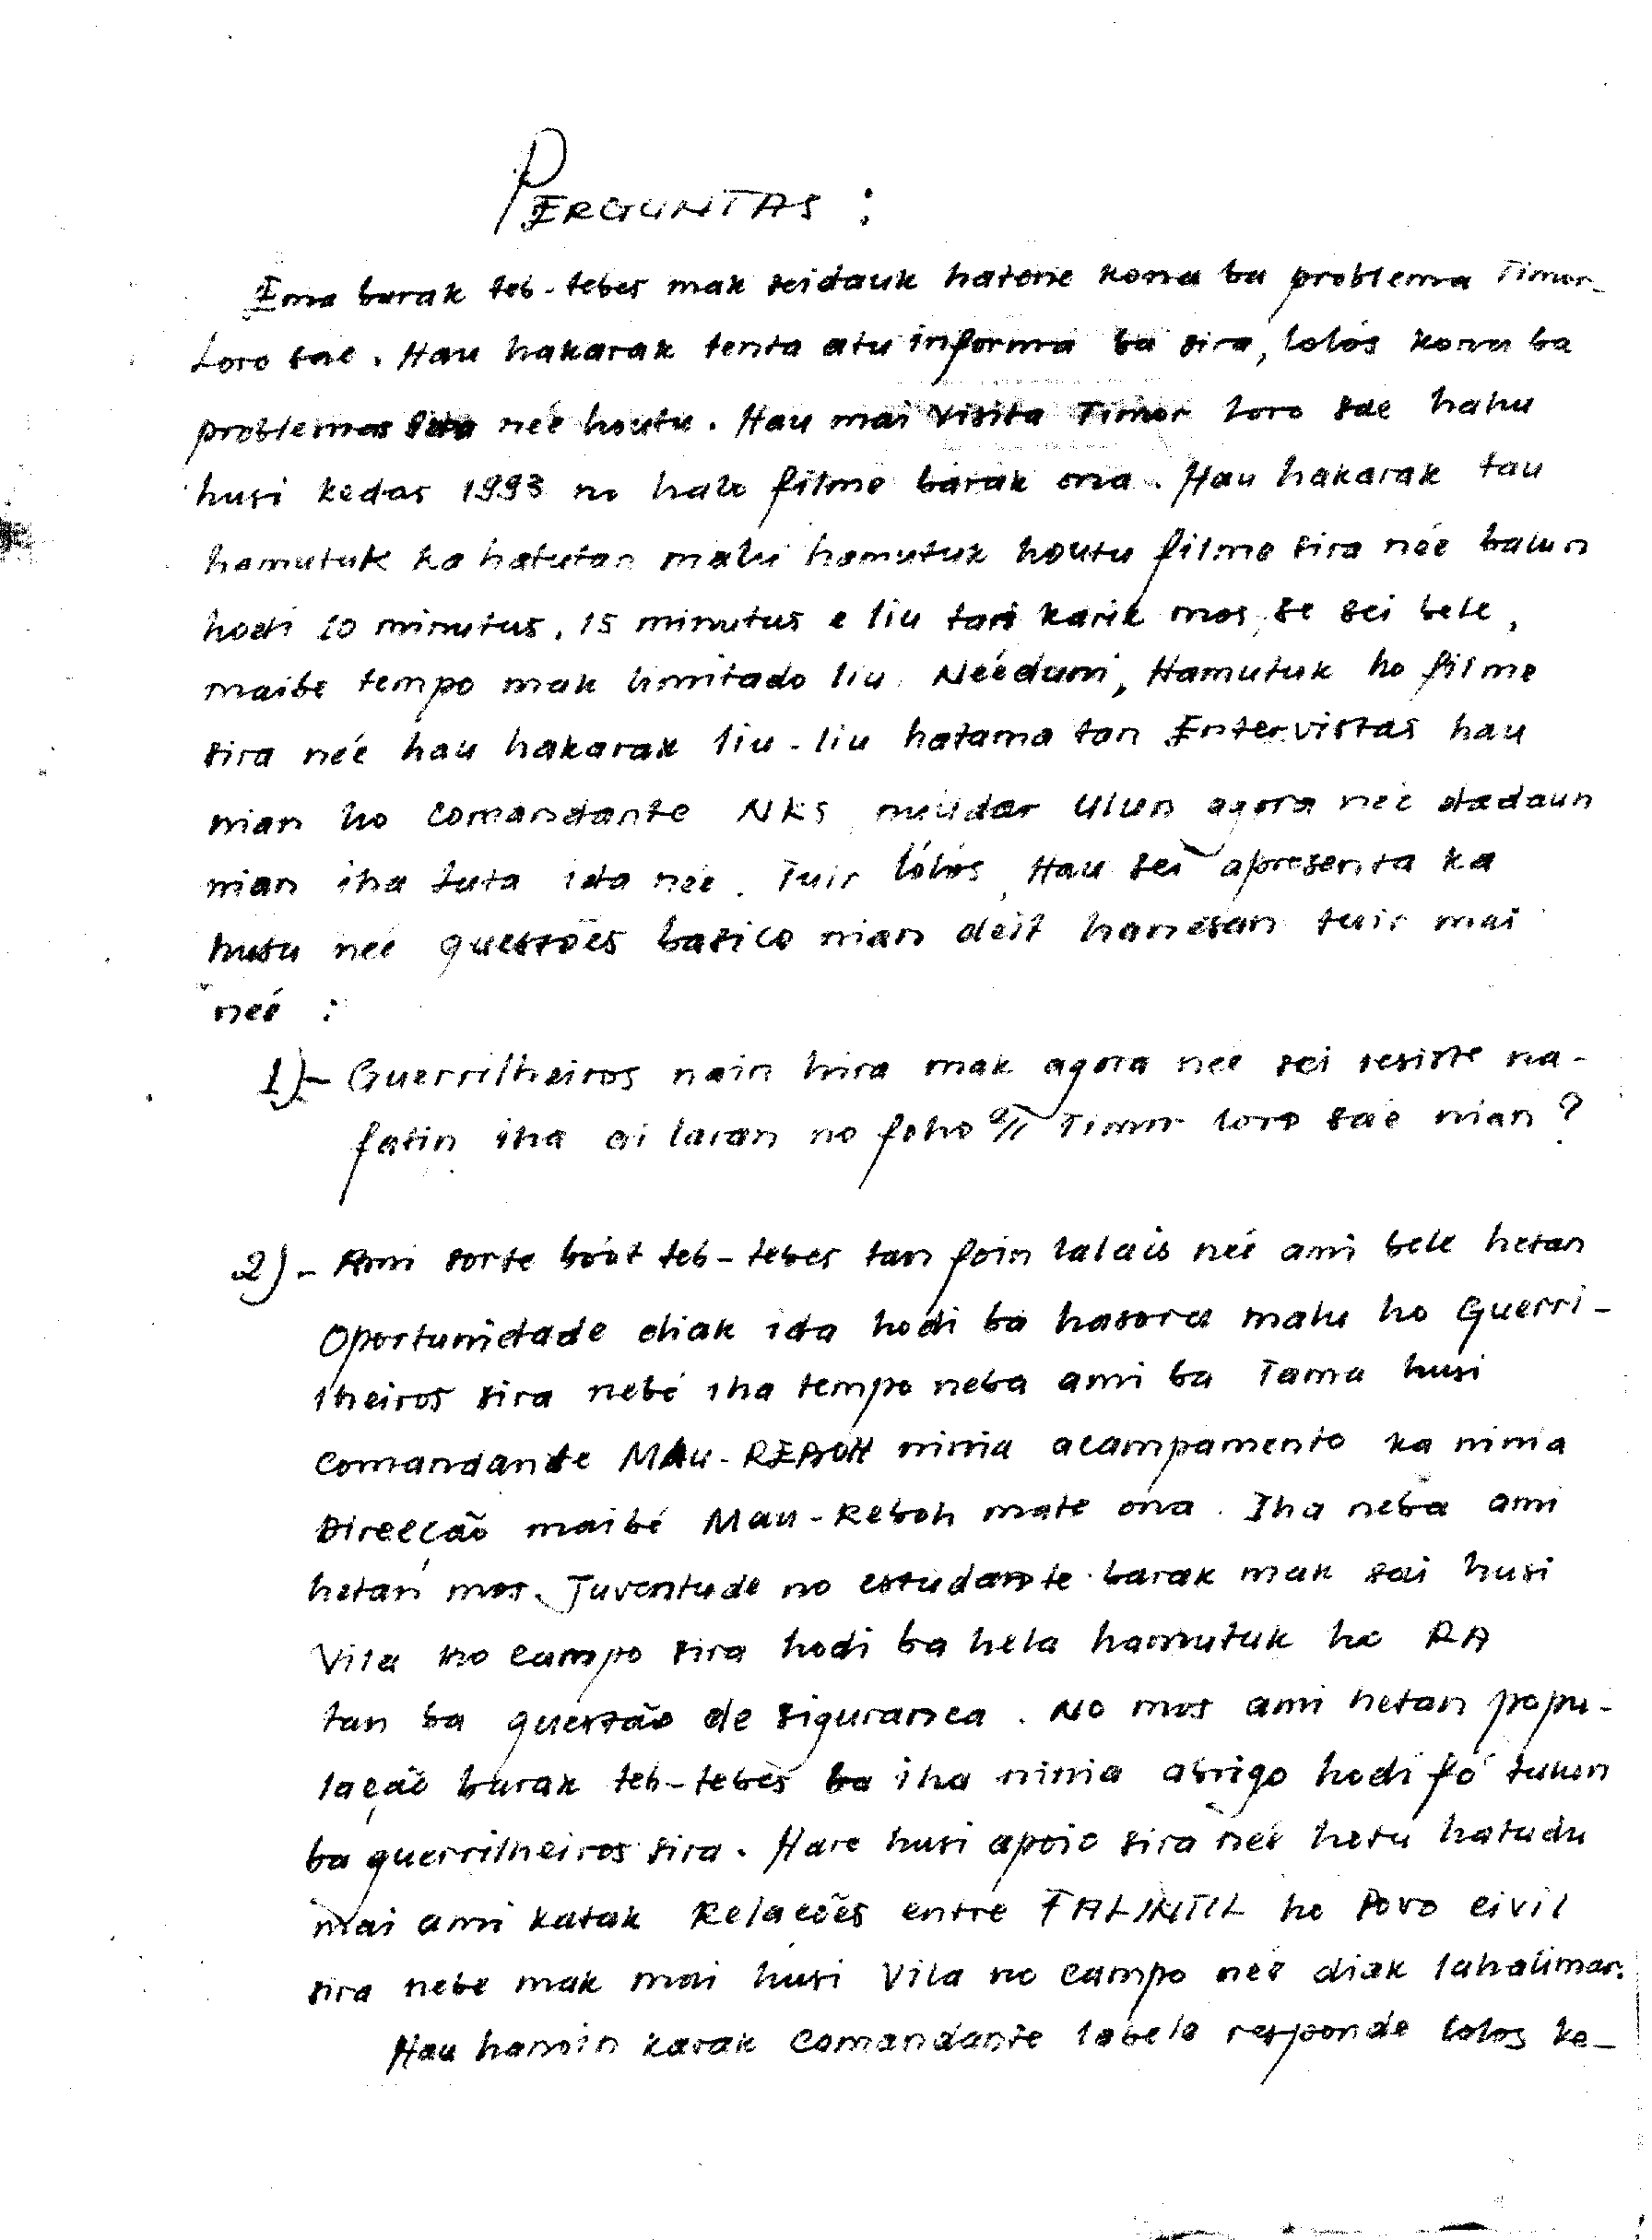 PERGUNTAS :
Ema barak teb-tebes mak seidauk hatene kona ba problema Timor-
Loro sae. Hau hakarak tenta atu informa ba sira, lolós kona ba
problemas neé houtu. Hau mai visita Timor Loro sae hahu
husi kedas 1993 no halo filme barak ona. Hau hakarak tau
hamutuk ka hatutan malu hamutuk houtu filme sira neé balun
hodi 10 minutus, 15 minutus e liu tan karik mos, se sei bele,
maibe tempo mak limitado liu. Neéduni, Hamutuk ho filme
sira neé hau hakarak liu-liu hatama tan Entervistas hau
nian ho Comandante NKS nuúdar Ulun agora neé dadaun
nian iha luta ida neé. Tuir lólós, Hau sei apresenta ka
husu neé questões basico nian deit hanesan tuir mai
neé :
1)- Guerrilheiros nain hira mak agora neé sei resiste na-
fatin iha ai laran no foho Timor loro sae nian ?
2)- Ami sorte boót teb-tebes tan foin lalais neé ami bele hetan
Oportunidade diak ida hodi ba hasoru malu ho Guerri-
lheiros sira nebé iha tempo neba ami ba Tama husi
Comandante Mau-REBOH ninia acampamento ka ninia
Direcção maibé Mau-Reboh mate ona. Iha neba ami
hetan mos Juventude no estudante barak mak sai husi
Vila no Campo sira hodi ba hela hamutuk ho RA
tan ba questão de siguranca. No mos ami hetan popu-
lação barak teb-tebes ba iha ninia abrigo hodi fó tulun
ba guerrilheiros sira. Hare husi apoio sira neé hotu hatudu
mai ami katak Relações entre FALINTIL ho Povo civil
sira nebe mak mai husi Vila no Campo neé diak lahalimar.
Hau hanoin karak Comandante labele responde lolos ke-